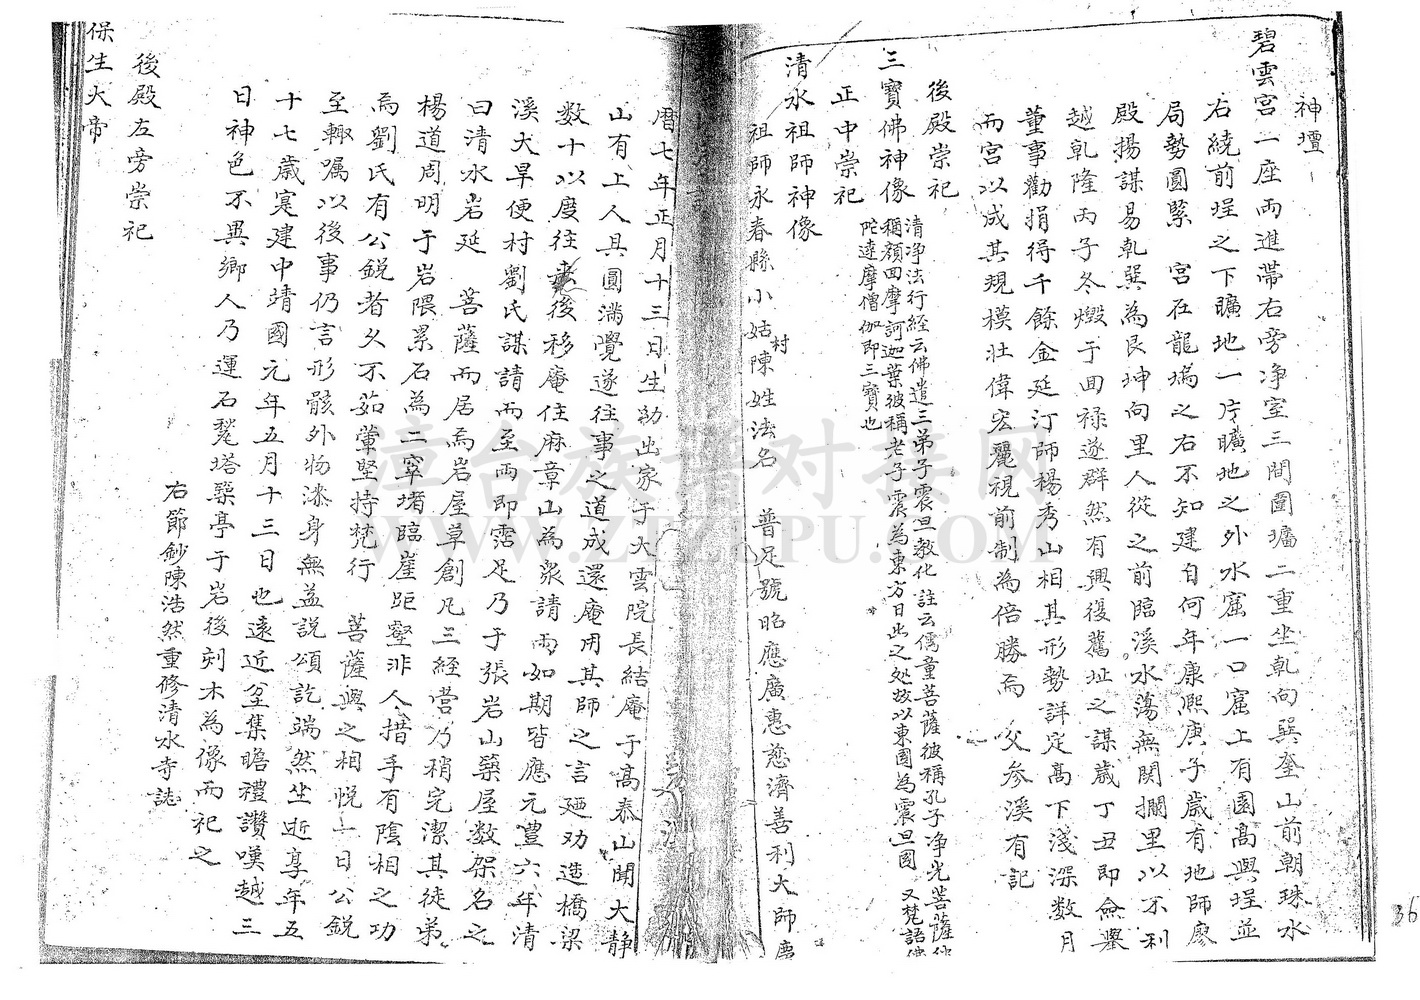 神壇
碧雲宮一座兩進帶右旁净室三間圍墻二重坐乾向巽奎山前朝珠水
右繞前埕之下曠地一片曠地之外水窟一口窟上有園高與埕並
局勢圓緊 宮在龍塢之右不知建自何年康熙庚子歲有地師廖
殿揚謀易乾巽為艮坤向里人從之前臨溪水蕩無関攔里以不利
越乾隆丙子冬燬于回祿遂群然有興復舊址之謀歲丁丑即僉舉
董事勸捐得千餘金延汀師楊秀山相其形勢詳定高下淺深数月
而宮以成其規模壯偉宏麗視前制為倍勝焉 父参溪有記
後殿崇祀
三寶佛神像
清净法行經云佛遣三弟子震旦教化註云儒童菩薩彼稱孔子净光菩薩彼
稱顏回摩訶迦葉彼稱老子震為東方日出之处故以東國為震旦國 又梵語佛
陀達摩僧伽即三寶也
正中崇祀
清水祖師神像
祖師永春縣小姑村陳姓法名 普足號昭應廣惠慈濟善利大師慶
曆七年正月十三日生幼出家于大雲院長結庵于高泰山聞大静
山有上人具圓滿覺遂往事之道成還庵用其師之言廼劝造橋梁
数十以度往来後移庵住麻章山為衆請雨如期皆應元豊六年清
溪大旱便村劉氏謀請而至雨即霑足乃于張岩山築屋数架名之
曰清水岩延 菩薩而居焉岩屋草創凡三經营乃稍完潔其徒弟
楊道周明于岩隈累石為二窣堵臨崖距壑非人措手有陰相之功
焉劉氏有公銳者久不茹葷堅持梵行 菩薩與之相悦一日公銳
至輙嘱以後事仍言形骸外物漆身無益説頌訖端然坐逝享年五
十七歲寔建中靖國元年五月十三日也遠近坌集瞻禮讚嘆越三
日神色不異鄉人乃運石甃塔築亭于岩後刻木為像而祀之
右節鈔陳浩然重修清水寺誌
後殿左旁崇祀
保生大帝
漳台族谱对接网
WWW.ZTZUPU.COM
36